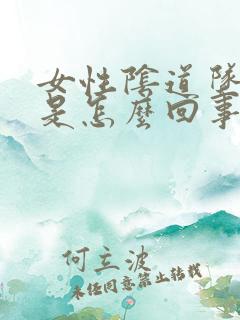 女性陰道隧
是怎麼回事
何立波
未經同意禁止轉載